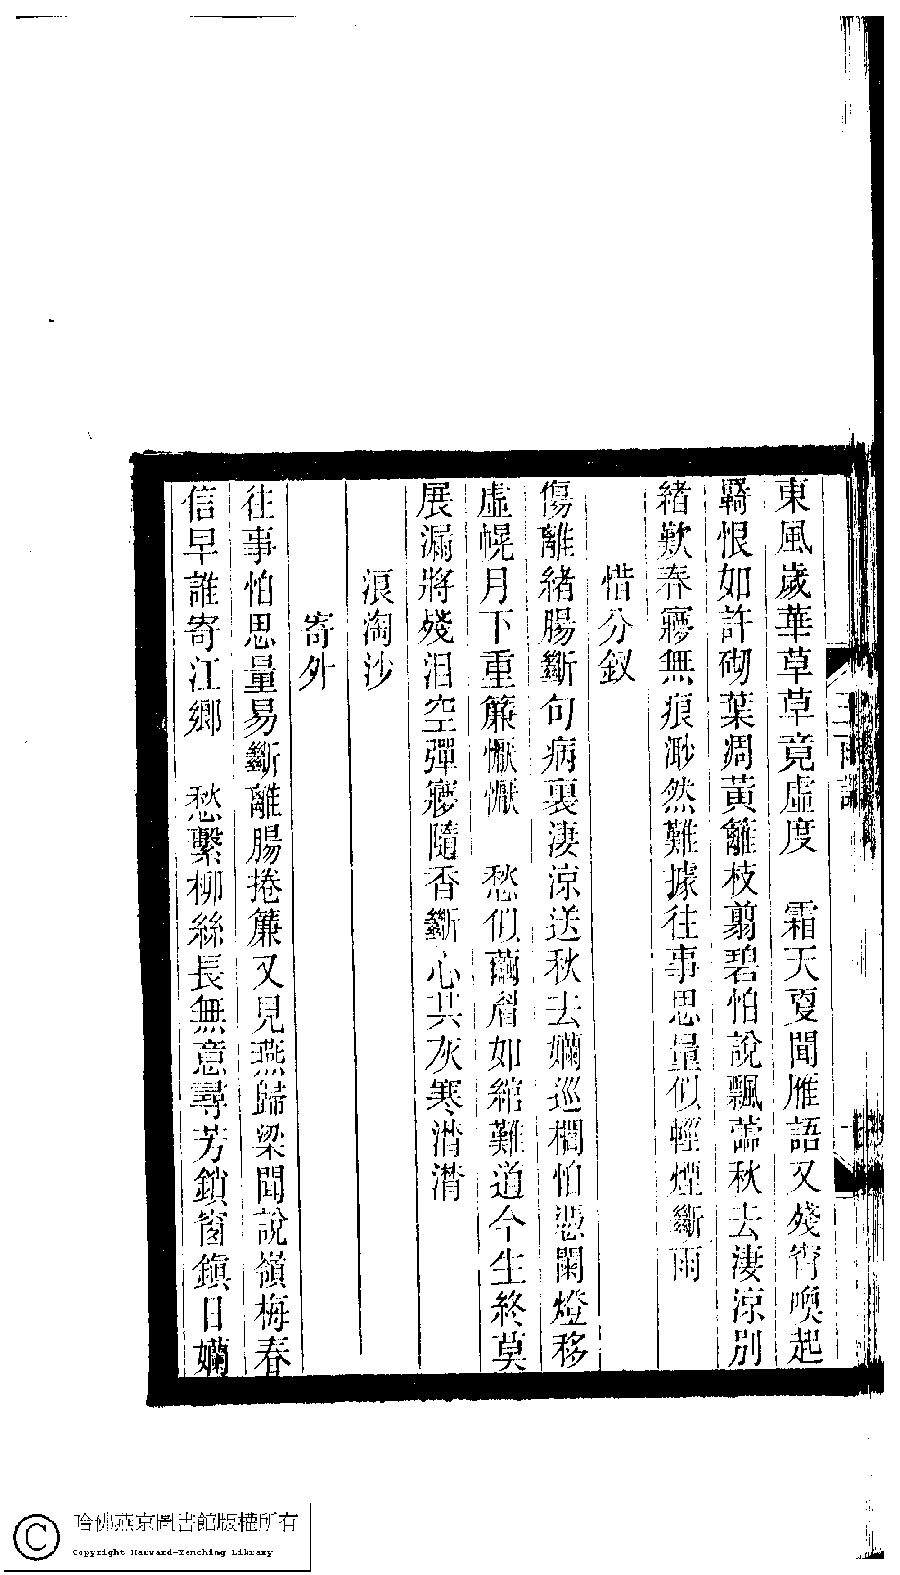 東風歲華草草竟虛度　霜天夏聞雁語又殘宵喚起
羇恨如許砌葉凋黃籬枝翦碧怕說飄蓬秋去淒涼別
緒歎春寢無痕渺然難據往事思量似輕煙斷雨
惜分釵
傷離緒腸斷句病裏淒涼送秋去嬾巡櫩怕憑闌燈移
虛幌月下重簾懨懨　愁似繭眉如綰難道今生終莫
展漏將殘泪空彈寢隨香斷心共灰寒潸潸
浪淘沙
寄外
往事怕思量易斷離腸捲簾又見燕歸梁聞說嶺梅春
信早誰寄江鄉　愁繫柳絲長無意尋芳鎖窗鎮日嬾
哈佛燕京圖書館版權所有
Copyright Harvard-Yenching Library